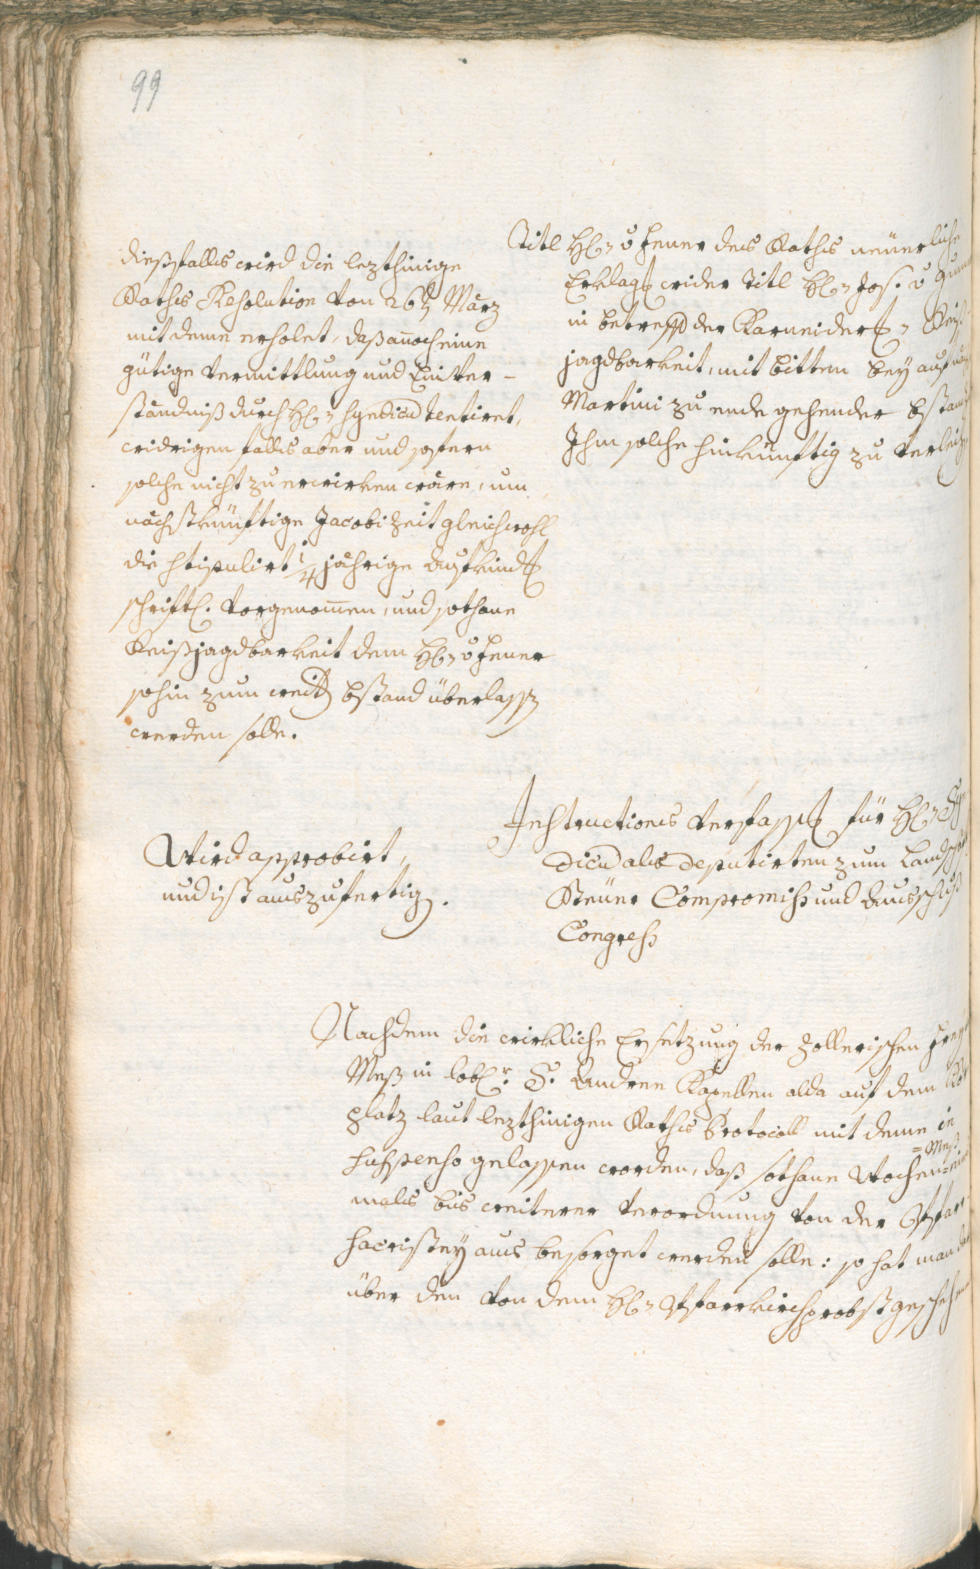 99
diesfalls wird die lezthinige
Raths Resolution von 26ten März
mit deme erholet, daß annoch eine
gütige Vermittlung und Einver-
ständniß durch H: Syndicu tentiret,
widrigen falls aber und sofern
solche nicht zu erwirken wäre, um
nächstkünftige Jacobi Zeit gleichwohl
die stipulirt 1/4 jährige Aufkindt
schriftl. vorgenommen, und sothane
Reißjagdbarkeit dem H: v Zener
sohin zum weitern bstand überlassen
werden solle.
Titl H: v Zener des Raths neüerliche
Erklag wider Titl H: Jos. v
in betreff der Karneider
jagdbarkeit, mit bitten bey auf
Martini zu ende gehender bstand
Ihm solche hinkünftig zu verleihen
Wird approbirt,
und ist auszufertigen.
Instructions verfassg für H:
dicu als deputirten zum Land
Steüer Compromiss und Ausschuß
Congress
Nachdem die wirkliche Ersetzung der Zollerischen
Meß in lobl.r S. Andree Kapellen alda auf dem
platz laut lezthinigen Raths Protocoll mit deme in
suspenso gelassen worden, daß sothane Wochen=
=Meß
mals bis weiterer Verordnung von der Pfarr
sacristey aus besorget werden solle: so hat man
über den von dem H: Pfarrkirchprobst